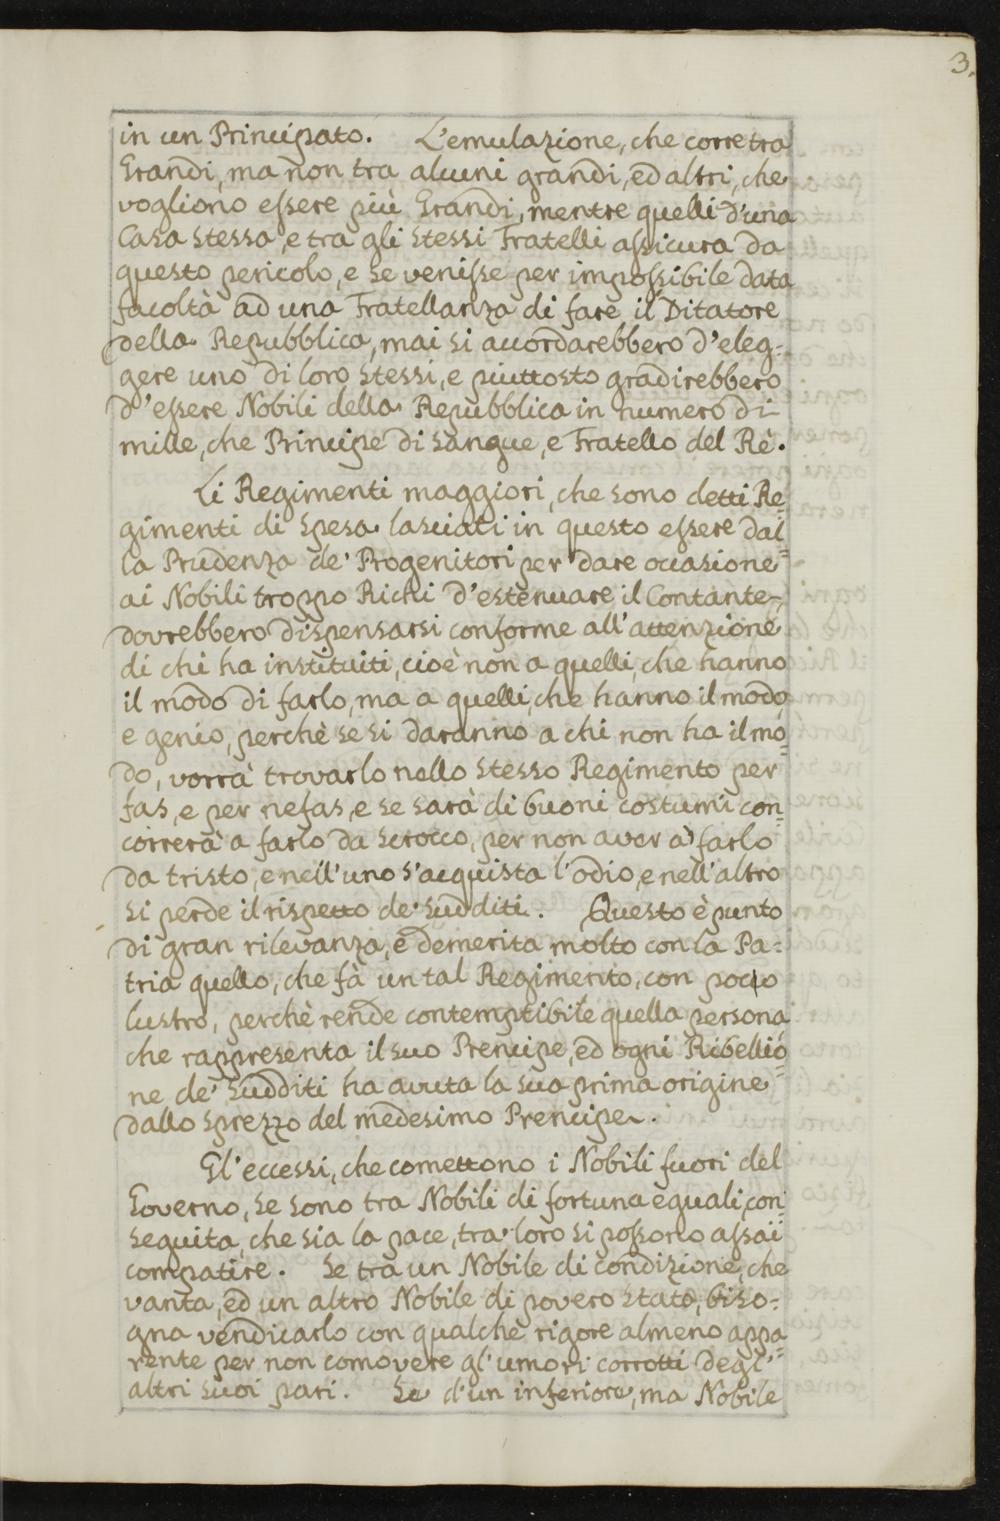 3.
in un Principato. L'emulazione, che corre tra
Grandi, ma non tra alcuni grandi, ed altri, che
vogliono essere più Grandi, mentre quelli d'una
Casa stessa, e tra gli stessi Fratelli assicura da
questo pericolo, e se venisse per impossibile data
facoltà ad una Fratellanza di fare il Ditatore
della Repubblica, mai si accordarebbero d'eleg-
gere uno di loro stessi, e piuttosto gradirebbero
d'essere Nobili della Repubblica in numero di
mille, che Principe di sangue, e Fratello del Rè.
Li Regimenti maggiori, che sono detti Re=
gimenti di spesa lasciati in questo essere dal=
la Prudenza de' Progenitori per dare occasione
ai Nobili troppo Richi d'estenuare il Contante,
dovrebbero dispensarsi conforme all'attenzione
di chi ha instituiti, cioè non a quelli, che hanno
il modo di farlo, ma a quelli, che hanno il modo,
e genio, perchè se si daranno a chi non ha il mo=
do, vorrà trovarlo nello stesso Regimento per
fas, e per nefas, e se sarà di buoni costumi con=
correrà a farlo da scrocco, per non aver à farlo
da tristo, e nell'uno s'acquista l'odio, e nell'altro
si perde il rispetto de' sudditi. Questo è punto
di gran rilevanza, e demerita molto con la Pa=
tria quello, che fà un tal Regimento, con poco
lustro, perchè rende contemptibile quella persona
che rappresenta il suo Prencipe, ed ogni Ribellio=
ne de' sudditi ha avuta la sua prima origine
dallo sprezzo del medesimo Prencipe.
Gl'eccessi, che comettono i Nobili fuori del
Governo, se sono tra Nobili di fortuna eguali, con=
seguita, che sia la pace, tra loro si possono assai
compatire. Se tra un Nobile di condizione, che
vanta, ed un altro Nobile di povero stato, biso=
gna vendicarlo con qualche rigore almeno appa=
rente per non comovere gl'umori corrotti degl'
altri suoi pari. Se d'un inferiore, ma Nobile